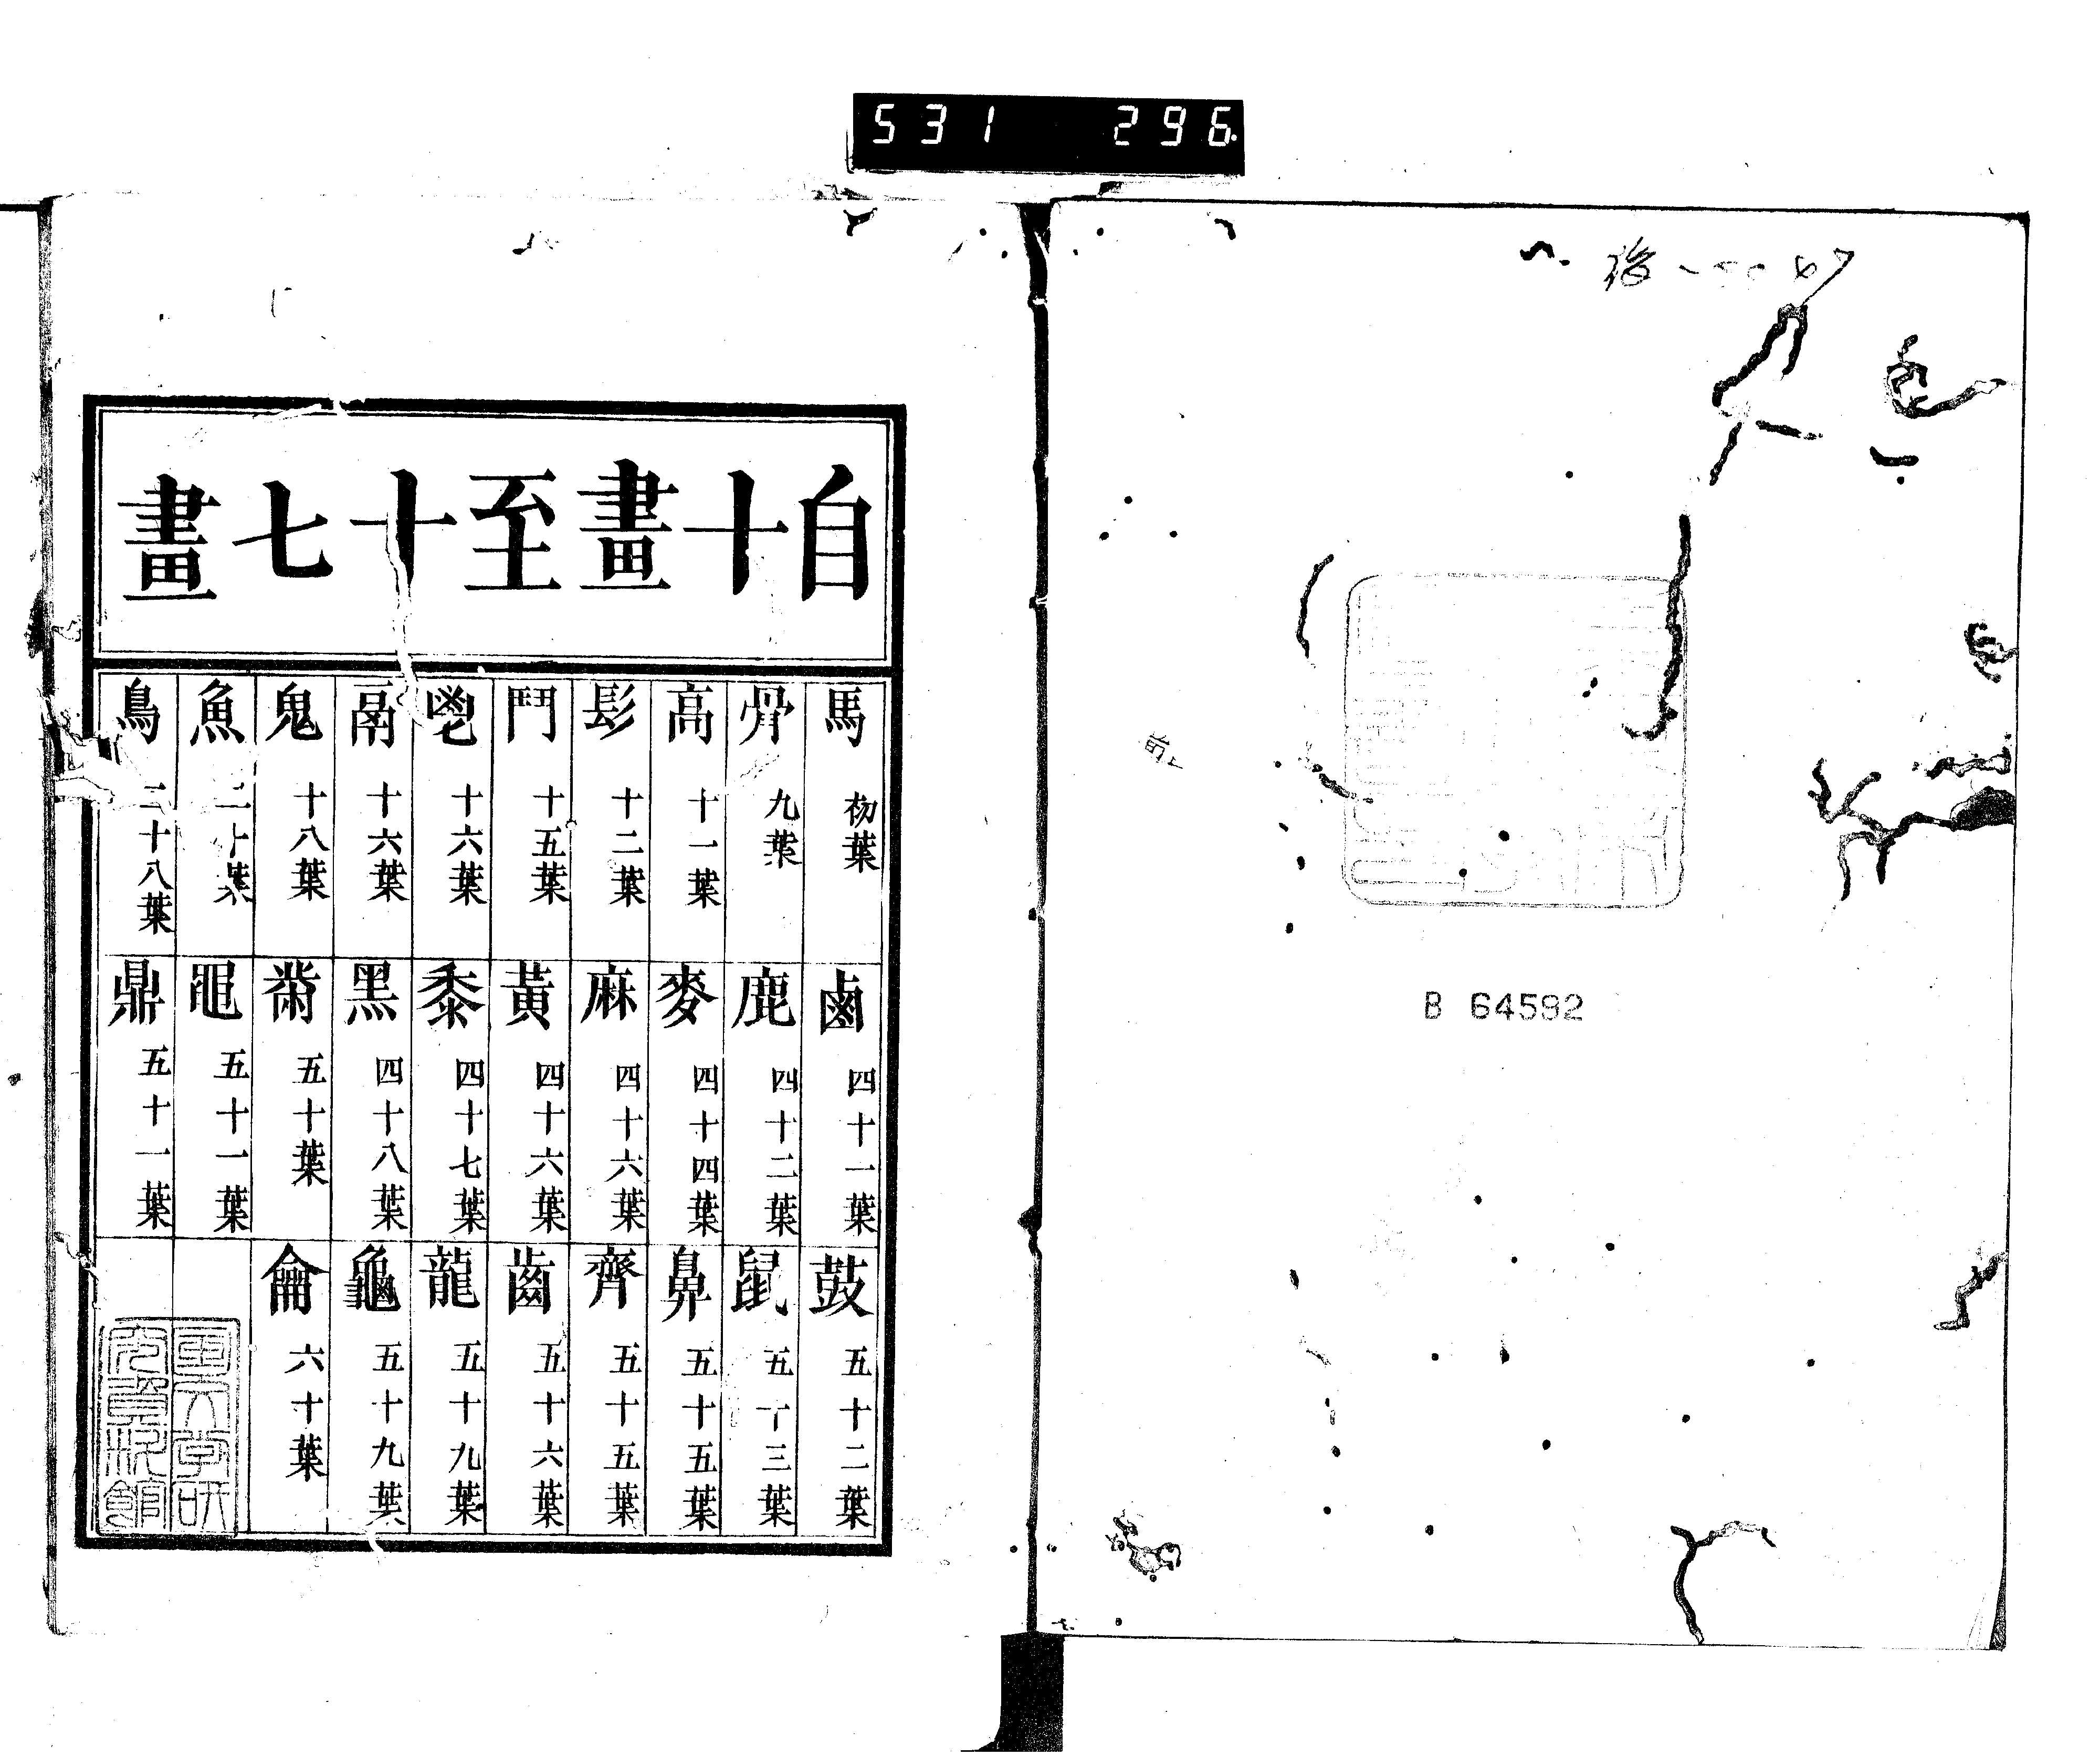 531 296
B 64592
自十畫至十七畫
馬 初葉
骨 九葉
高 十一葉
髟 十二葉
鬥 十五葉
鬯 十六葉
鬲 十六葉
鬼 十八葉
魚 二十葉
鳥 二十八葉
鹵 四十一葉
鹿 四十二葉
麥 四十四葉
麻 四十六葉
黃 四十六葉
黍 四十七葉
黑 四十八葉
黹 五十葉
黽 五十一葉
鼎 五十一葉
鼓 五十二葉
鼠 五十三葉
鼻 五十五葉
齊 五十五葉
齒 五十六葉
龍 五十九葉
龜 五十九葉
龠 六十葉